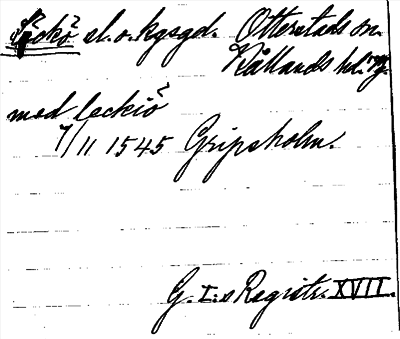 Läckö sl. o. kgsgd. Otterstads sn.
Kållands hd. Vg.
med leckiö
7/11 1545 Gripsholm.
G. I:s Registr. XVII.